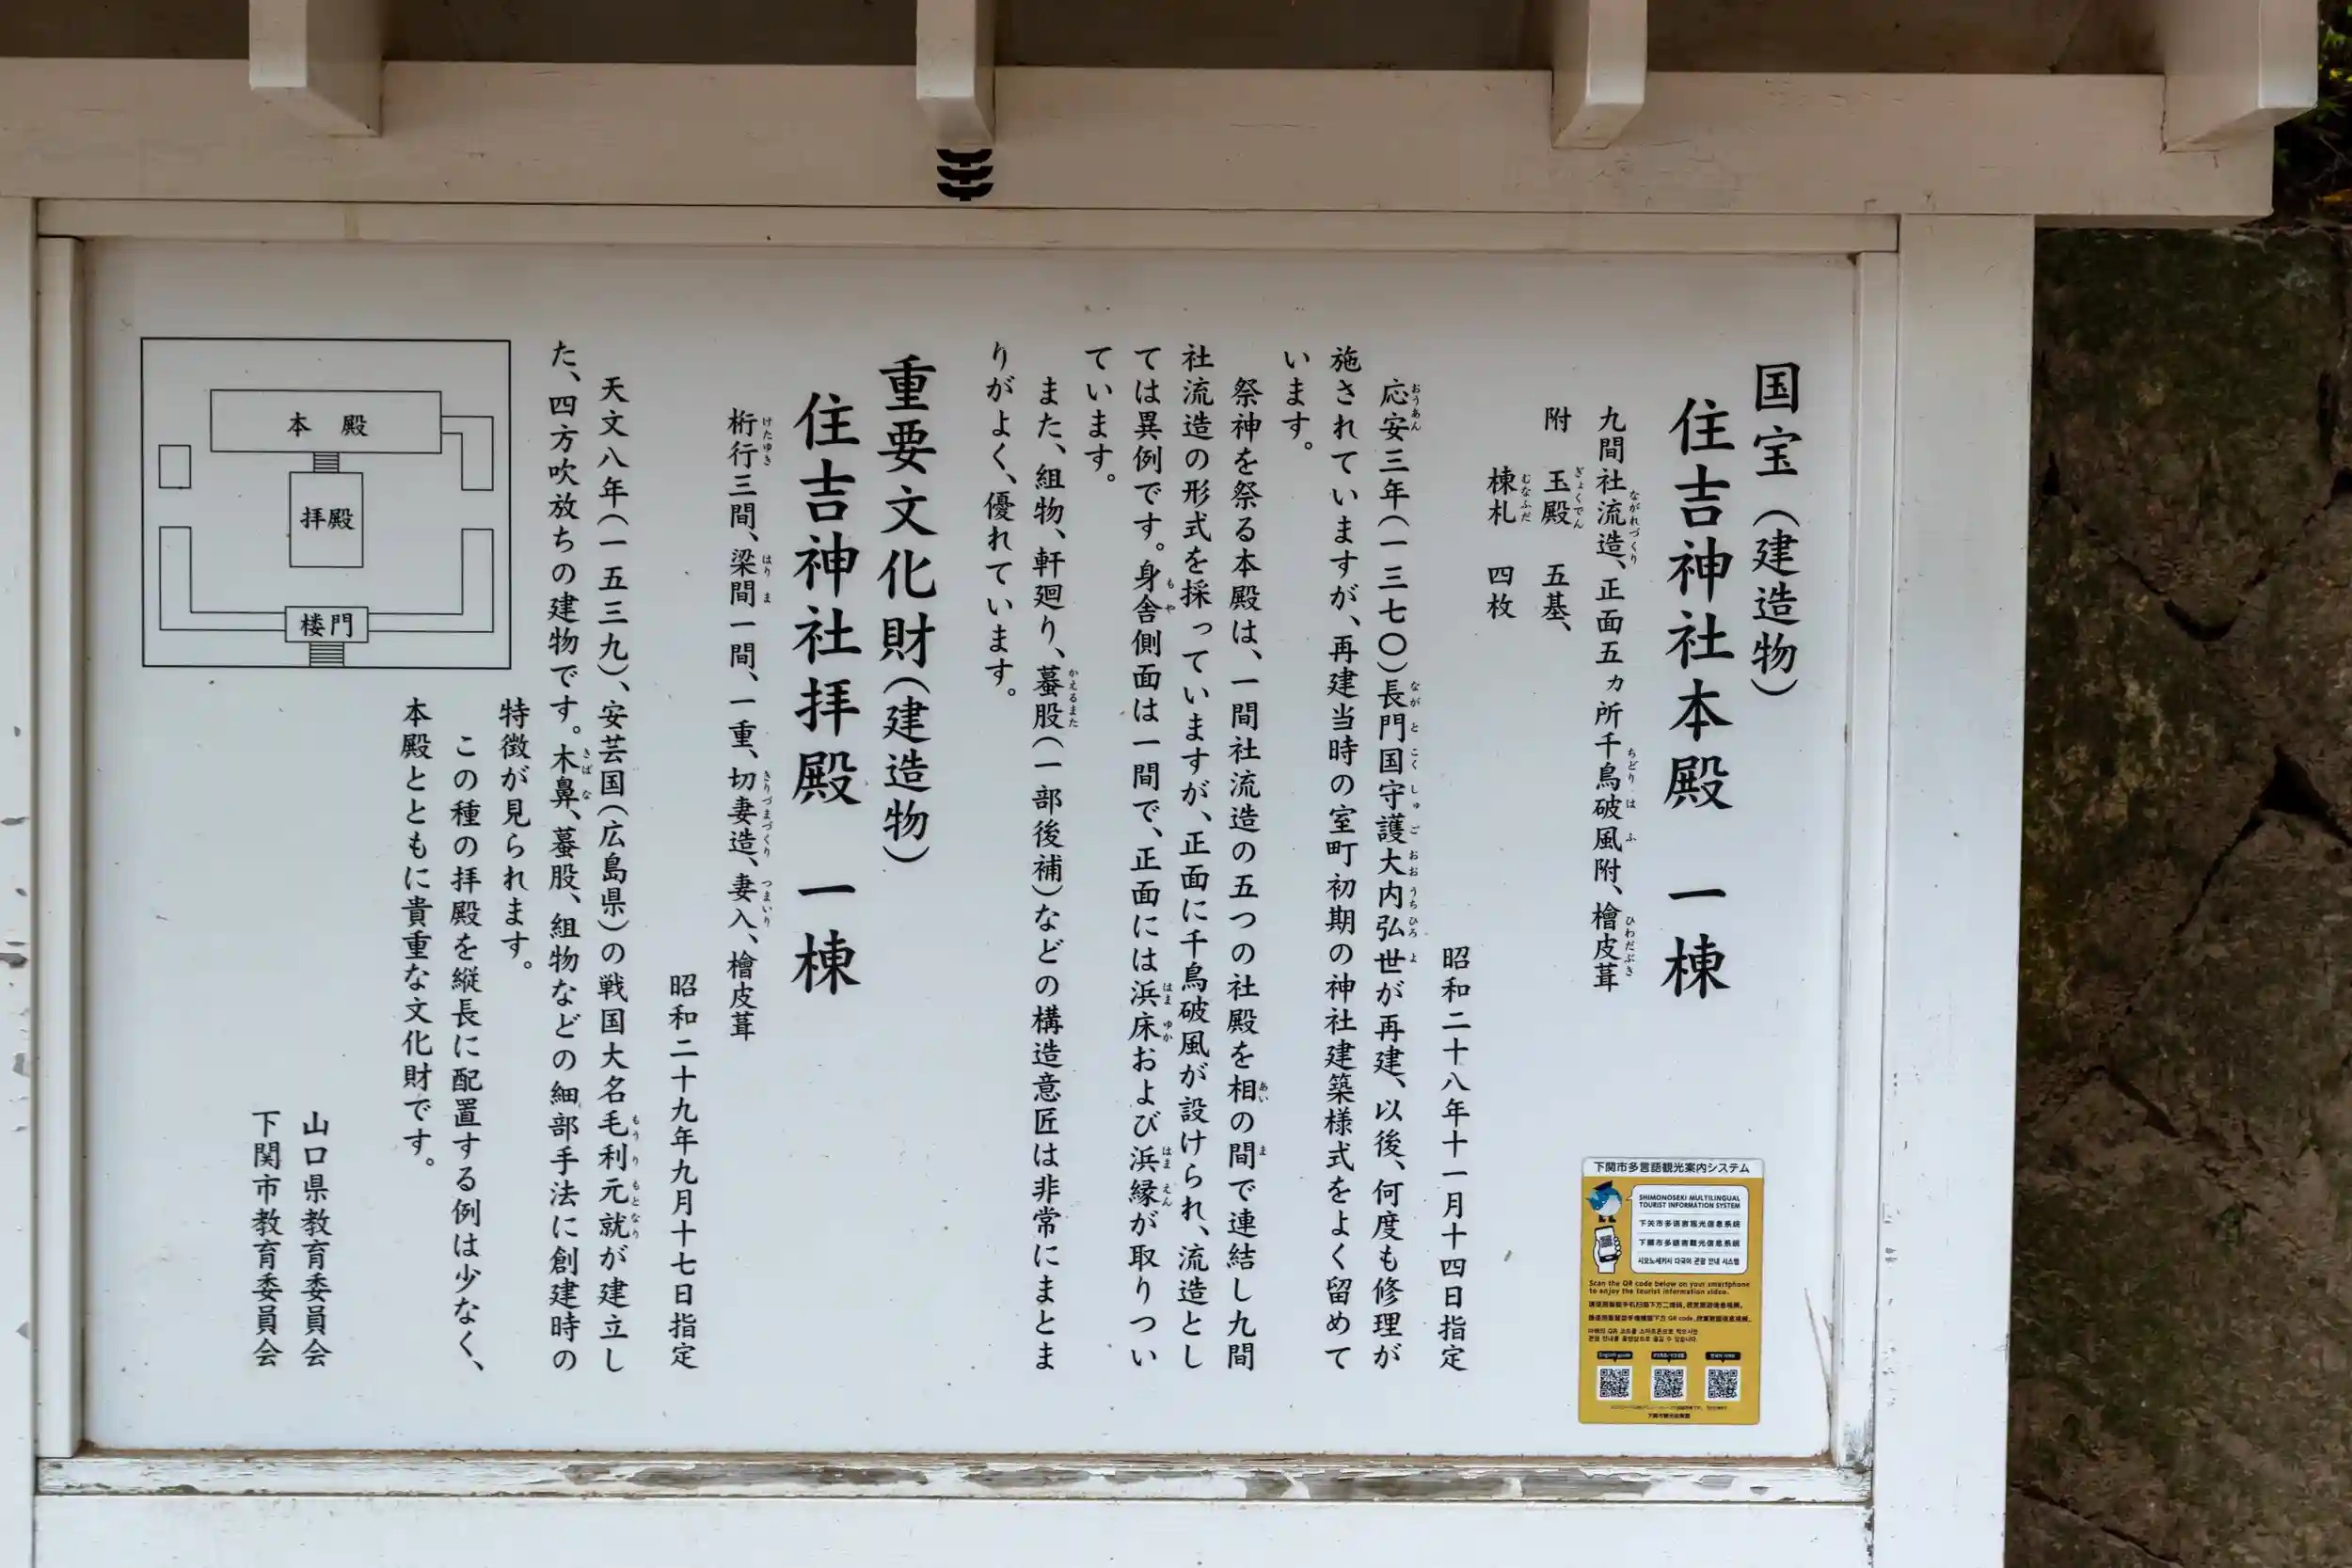 国宝（建造物）
住吉神社本殿　一棟
九間社流造、正面五ヵ所千鳥破風附、檜皮葺
附　玉殿　五基、
棟札　四枚
昭和二十八年十一月十四日指定
応安三年（一三七〇）長門国守護大内弘世が再建、以後、何度も修理が
施されていますが、再建当時の室町初期の神社建築様式をよく留めて
います。
祭神を祭る本殿は、一間社流造の五つの社殿を相の間で連結し九間
社流造の形式を採っていますが、正面に千鳥破風が設けられ、流造とし
ては異例です。身舎側面は一間で、正面には浜床および浜縁が取りつい
ています。
また、組物、軒廻り、蟇股（一部後補）などの構造意匠は非常にまとま
りがよく、優れています。
重要文化財（建造物）
住吉神社拝殿　一棟
桁行三間、梁間一間、一重、切妻造、妻入、檜皮葺
昭和二十九年九月十七日指定
天文八年（一五三九）、安芸国（広島県）の戦国大名毛利元就が建立し
た、四方吹放ちの建物です。木鼻、蟇股、組物などの細部手法に創建時の
特徴が見られます。
この種の拝殿を縦長に配置する例は少なく、
本殿とともに貴重な文化財です。
山口県教育委員会
下関市教育委員会
本殿
拝殿
楼門
下関市多言語観光案内システム
SHIMONOSEKI MULTILINGUAL
TOURIST INFORMATION SYSTEM
下关市多语言观光信息系统
下關市多語言觀光信息系統
시모노세키시 다국어 관광 안내 시스템
Scan the QR code below on your smartphone
to enjoy the tourist information video.
English guide